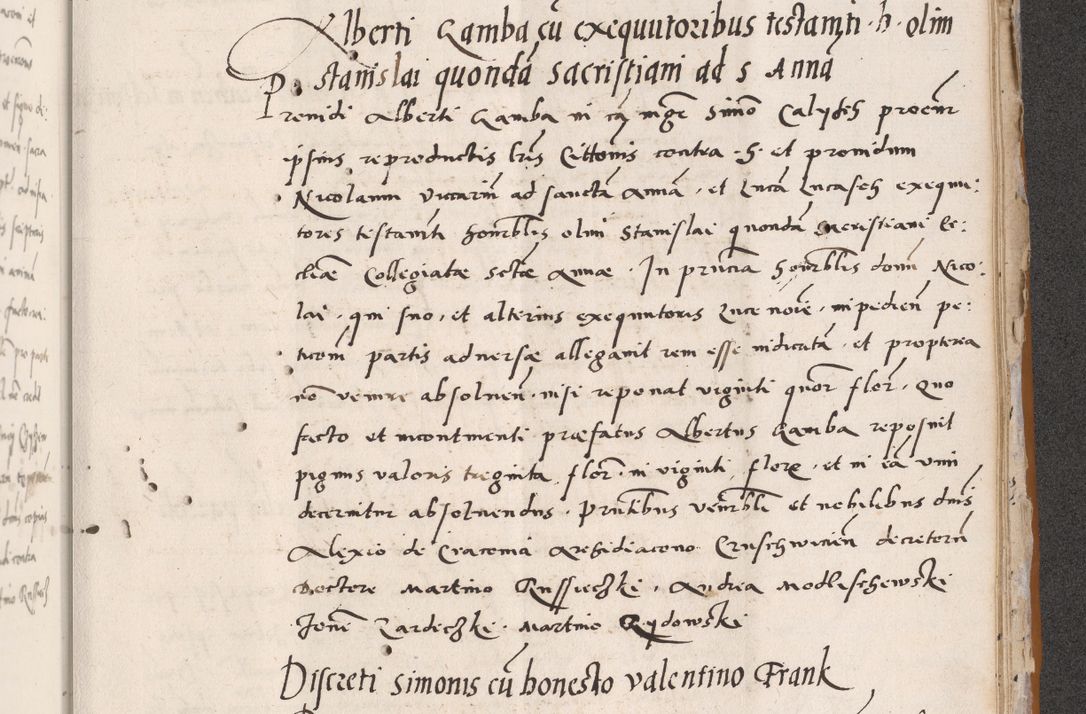 Alberti Gamba cū exequutoribus testamti h olim
Stanislai quondā sacristiani ad s Annā
Prouidi Alberti Gamba in cā mgri Simō procnr
ipsius reproductis lrīs Citonis contra h et prouidum
Nicolaum viccarīn ad sanctā Annā et Lucā exequu:
tores testamti honrblis olim Stanislai quondā sacristiani Ec:
cliae Collegiatae sctae Annae In prūcia honrblis domī Nico:
lai qui suo et alterius exequutoris Luce noīe impedien pe:
partis aduersae allegauit rem esse iudicatā et propterea
nō venire absoluen nisi reponat viginti quor flor Quo
facto et incontinenti praefatus Albertus Gamba reposuit
pignus valoris treginta flor in viginti flore et in eā
decernitur absoluendus Pnītibus venrbli et nobilibus dnīs
Alexio de Cracouia Archidiacono decretorū
Doctore Martino Andrea Modlischewski
Martino
Discreti Simonis cū honesto Valentino Frank